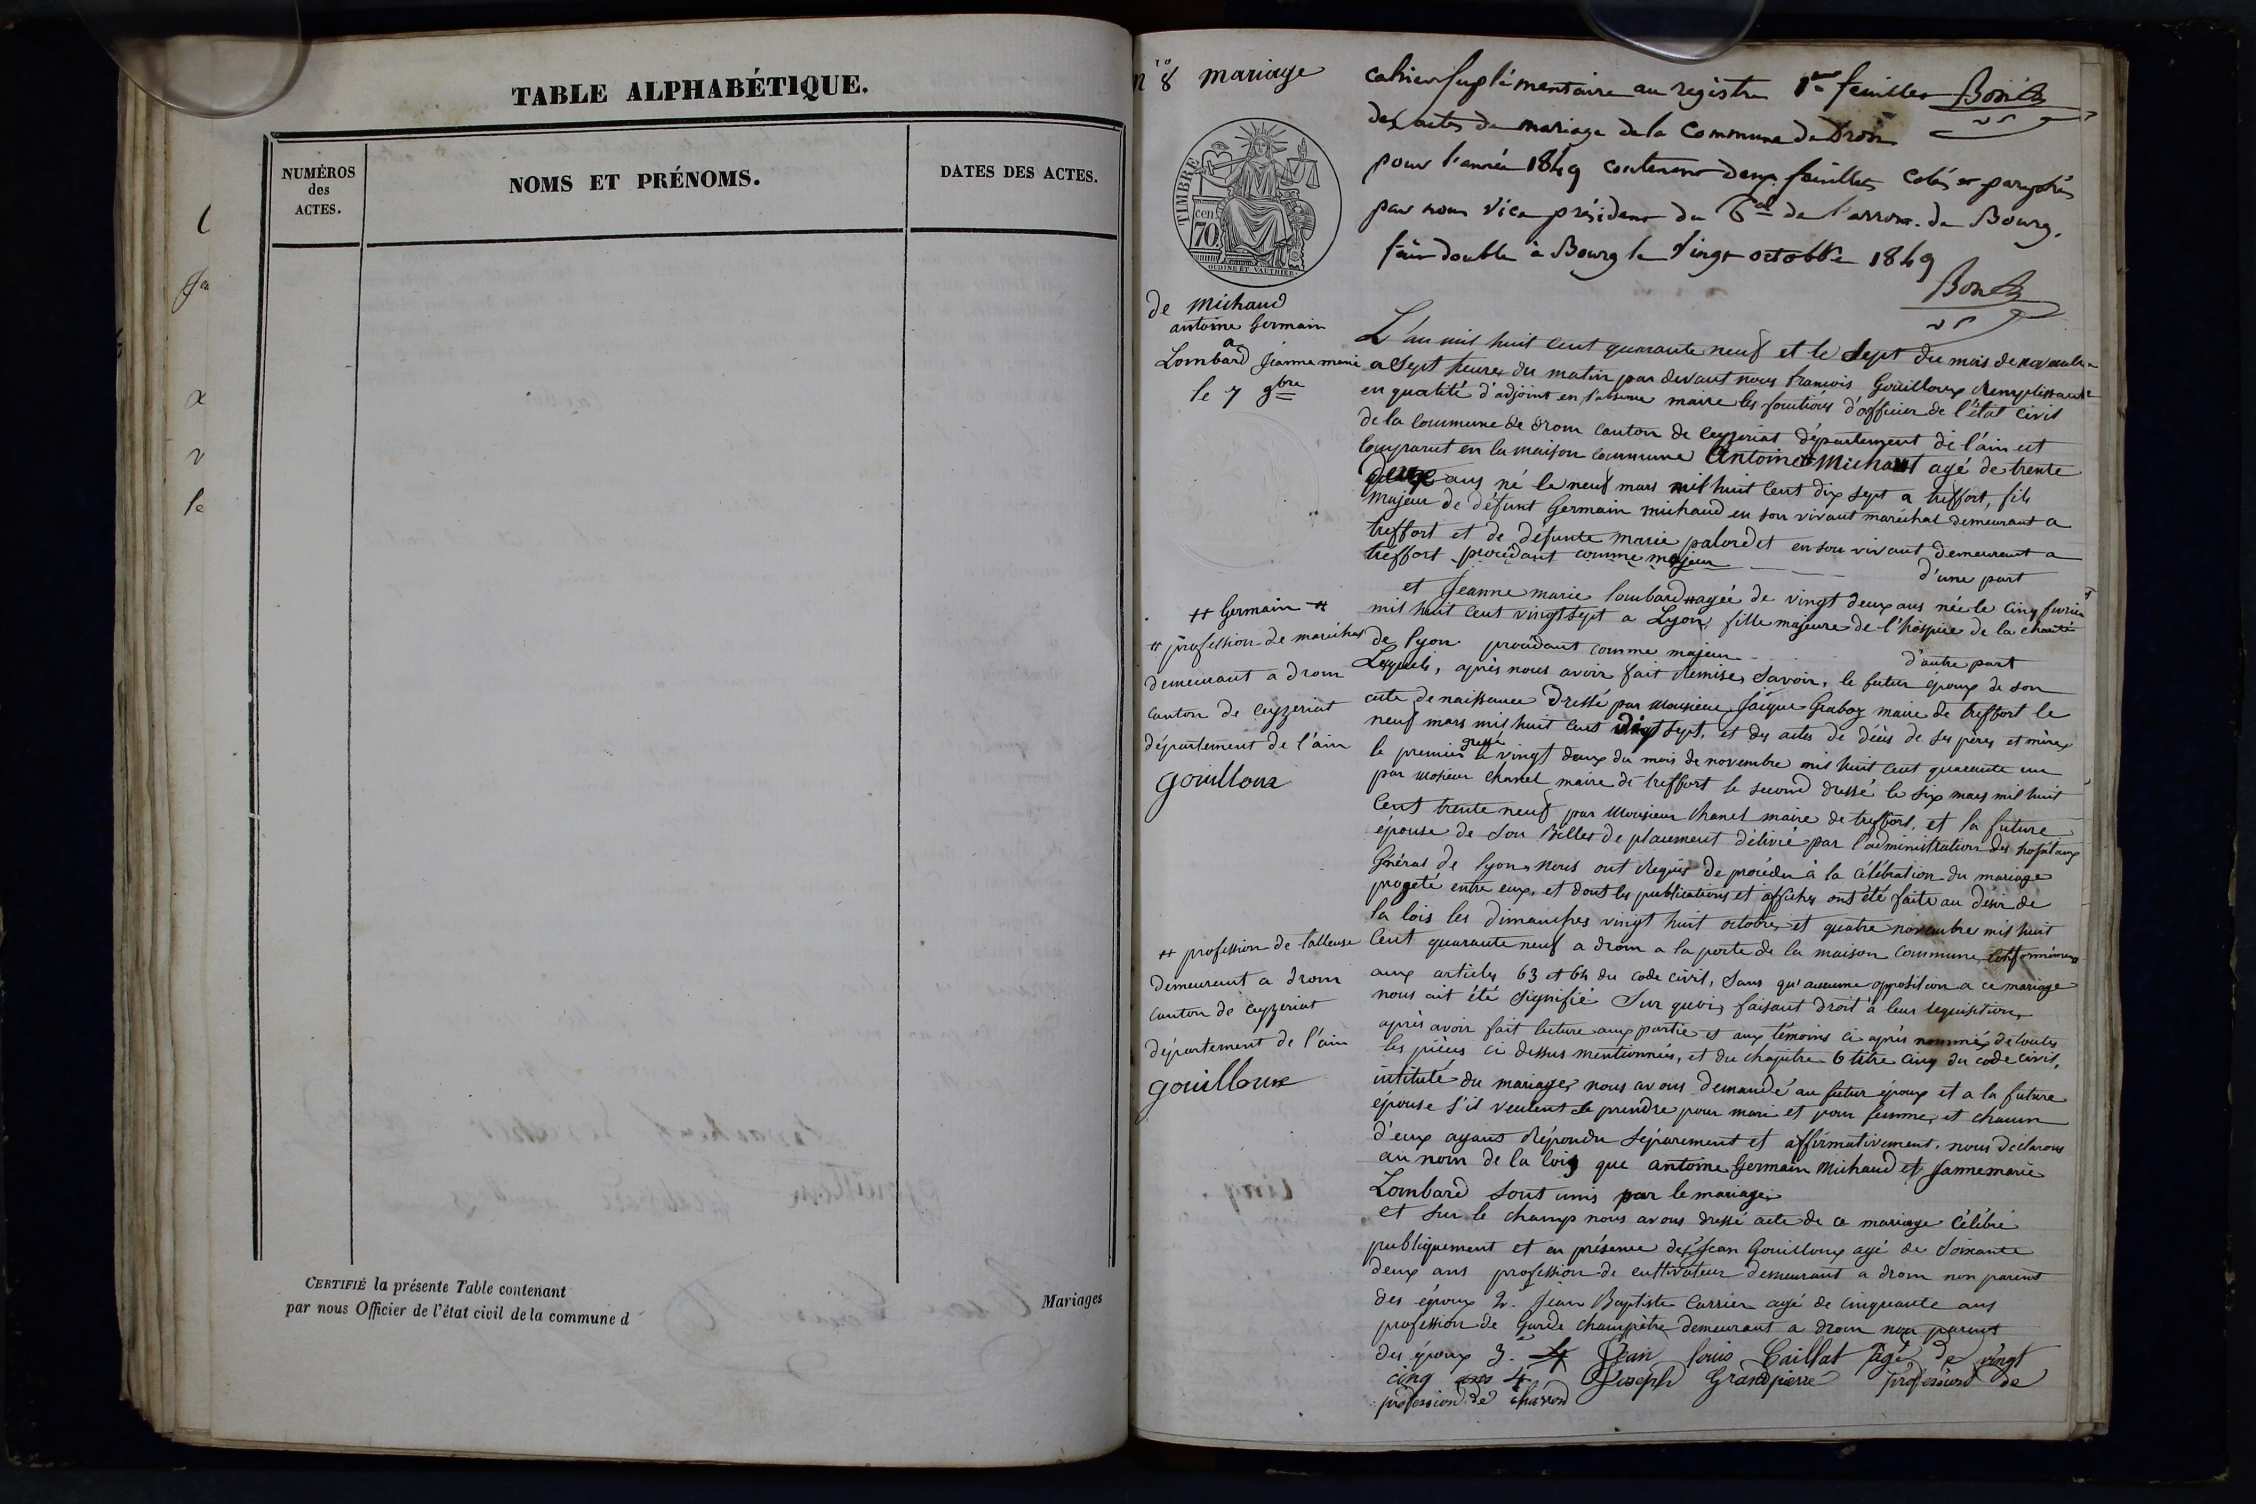 TABLE ALPHABÉTIQUE.
NUMÉROS
des
ACTES.
NOMS ET PRÉNOMS.
DATES DES ACTES.
CERTIFIÉ la présente Table contenant
Mariages
par nous Officier de l'état civil de la commune d
n° 8 mariage
TIMBRE
cen
70
OUDINÉ ET VAUTHIER
de Michaud
antoine Germain
a
Lombard Jeanne marie
le 7 9bre
cahier suplémentaire au registre 1er feuillet
des actes de mariage de la Commune de Drom
pour l'année 1849 contenant deux feuillets cotés et paraphés
par nous Vice président du Tal de l'arrond. de Bourg.
fait double à Bourg le Vingt octobre 1849
L'an mil huit cent quarante neuf et le Sept du mois de novembre
a Sept heures du matin par devant nous francois Gouilloux Remplissant
en qualité d'adjoint en l'absence maire les fonctions d'officier de l'état civil
de la commune de drom canton de ceyzeriat département de l'ain est
comparut en la maison commune Antoine ++ Michaud agé de trente
deux ans né le neuf mars mil huit cent dix sept a treffort, fils
majeur de défunt Germain michaud en son vivant maréchal demeurant a
treffort et de défunte marie palordet en son vivant demeurant a
treffort procédant comme majeur d'une part
et Jeanne marie lombard ++ agée de vingt deux ans née le cinq fevrier
mil huit cent vingt sept a Lyon, fille majeure de l'hospice de la charité
de lyon procédant comme majeur d'autre part
Lesquels, après nous avoir fait Remise, Savoir, le futur époux de son
acte de naissance Dressé par Monsieur Jaique Graboz maire de treffort le
neuf mars mil huit cent dix sept, et des actes de décès de ses pères et mères
dressé
le premier le vingt deux du mois de novembre mil huit cent quarante un
par Mosieur chanel maire de treffort le second dressé le six mars mil huit
Cent trente neuf par Monsieur Chanel maire de treffort, et la future
épouse de son Billet de placement délivré par l'administration des hopitaux
Général de lyon, nous ont Requis de procéder à la célébration du mariage
progeté entre eux, et dont les publications et affiches ont été faite au désir de
la lois les dimanches vingt huit octobre et quatre novembre mil huit
Cent quarante neuf a drom a la porte de la maison commune, conformément
aux articles 63 et 64 du code civil, Sans qu'aucune opposition a ce mariage
nous ait été signifié Sur quoi, faisant droit à leur requisition,
après avoir fait lecture aux partie et aux témoins ci après nommés de toutes
les pièces ci dessus mentionnées, et du chapitre 6 titre cinq du code civil,
intitulé du mariage, nous avons demandé au futur époux et a la future
épouse s'il veulent se prendre pour mari et pour femme, et chacun
d'eux ayant Répondu séparement et affirmativement, nous declarons
au nom de la loi, que antoine Germain Michaud et Jannemarie
Lombard sont unis par le mariage.
et Sur le champ nous avons dressé acte de ce mariage célébré
publiquement et en présence de 1° Jean Gouilloux agé de Soixante
deux ans profession de cultivateur demeurant a drom non parent
des époux 2. Jean Baptiste Carrier agé de cinquante ans
profession de Garde champètre demeurant a drom non parent
des époux 3. Jean louis Caillat agé de vingt
cinq ans 4 Joseph Grandpierre profession de
profession de charron
++ Germain ++
++ profession de maréchal
demeurant a drom
canton de ceyzeriat
département de l'ain
gouilloux
++ profession de tailleuse
demeurant a drom
canton de ceyzeriat
département de l'ain
gouilloux